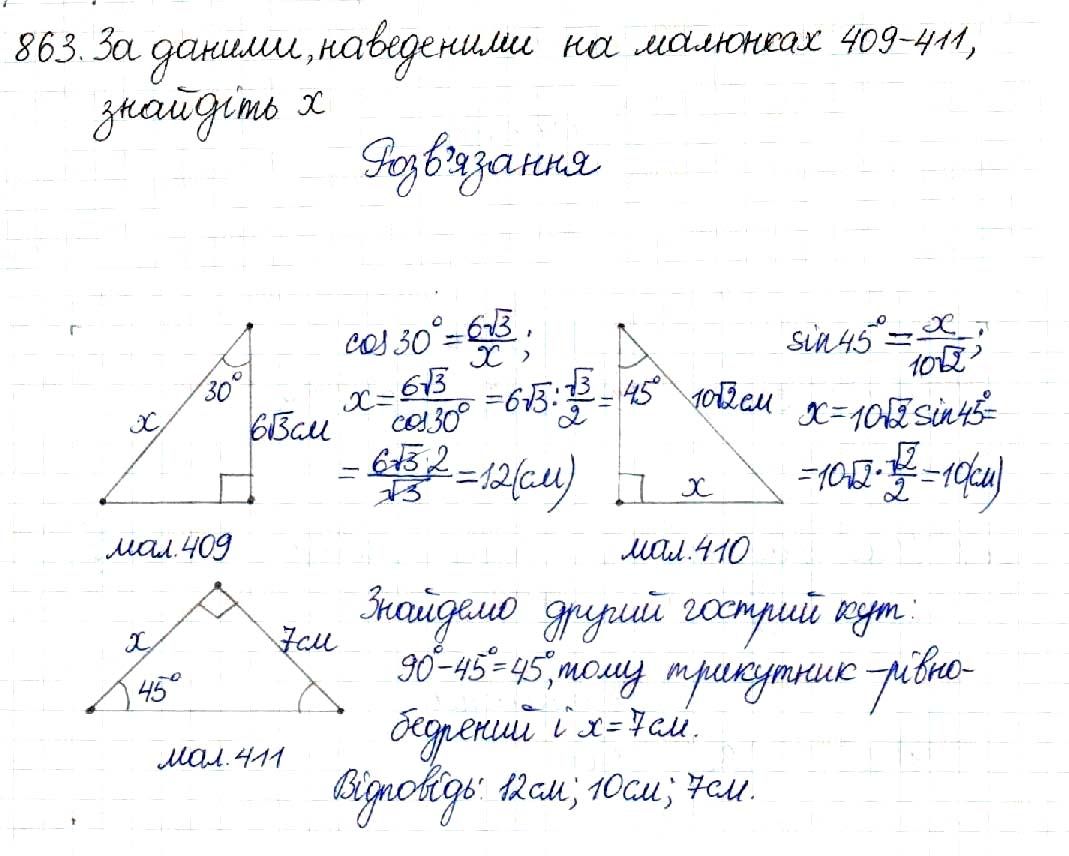 863. За даними, наведеними на малюнках 409-411,
знайдіть x
Розв'язання
30°
x
6√3 см
cos 30° = 6√3/x;
x = 6√3/cos 30° = 6√3 : √3/2 =
= 6√3·2/√3 = 12 (см)
мал. 409
45°
10√2 см
x
sin 45° = x/10√2;
x = 10√2 sin 45° =
= 10√2 · √2/2 = 10 (см)
мал. 410
x
7 см
45°
мал. 411
Знайдемо другий гострий кут:
90° - 45° = 45°, тому трикутник – рівно-
бедрений і x = 7 см.
Відповідь: 12 см; 10 см; 7 см.